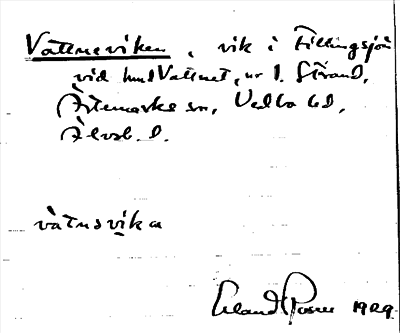 Vattneviken, vik i Fillingsjön
vid hmd Vattnet, nr 1. Strand,
Ärtemarks sn, Vedbo hd,
Älvsb. l.
vàtnsvika
Erland Rosell 1929.